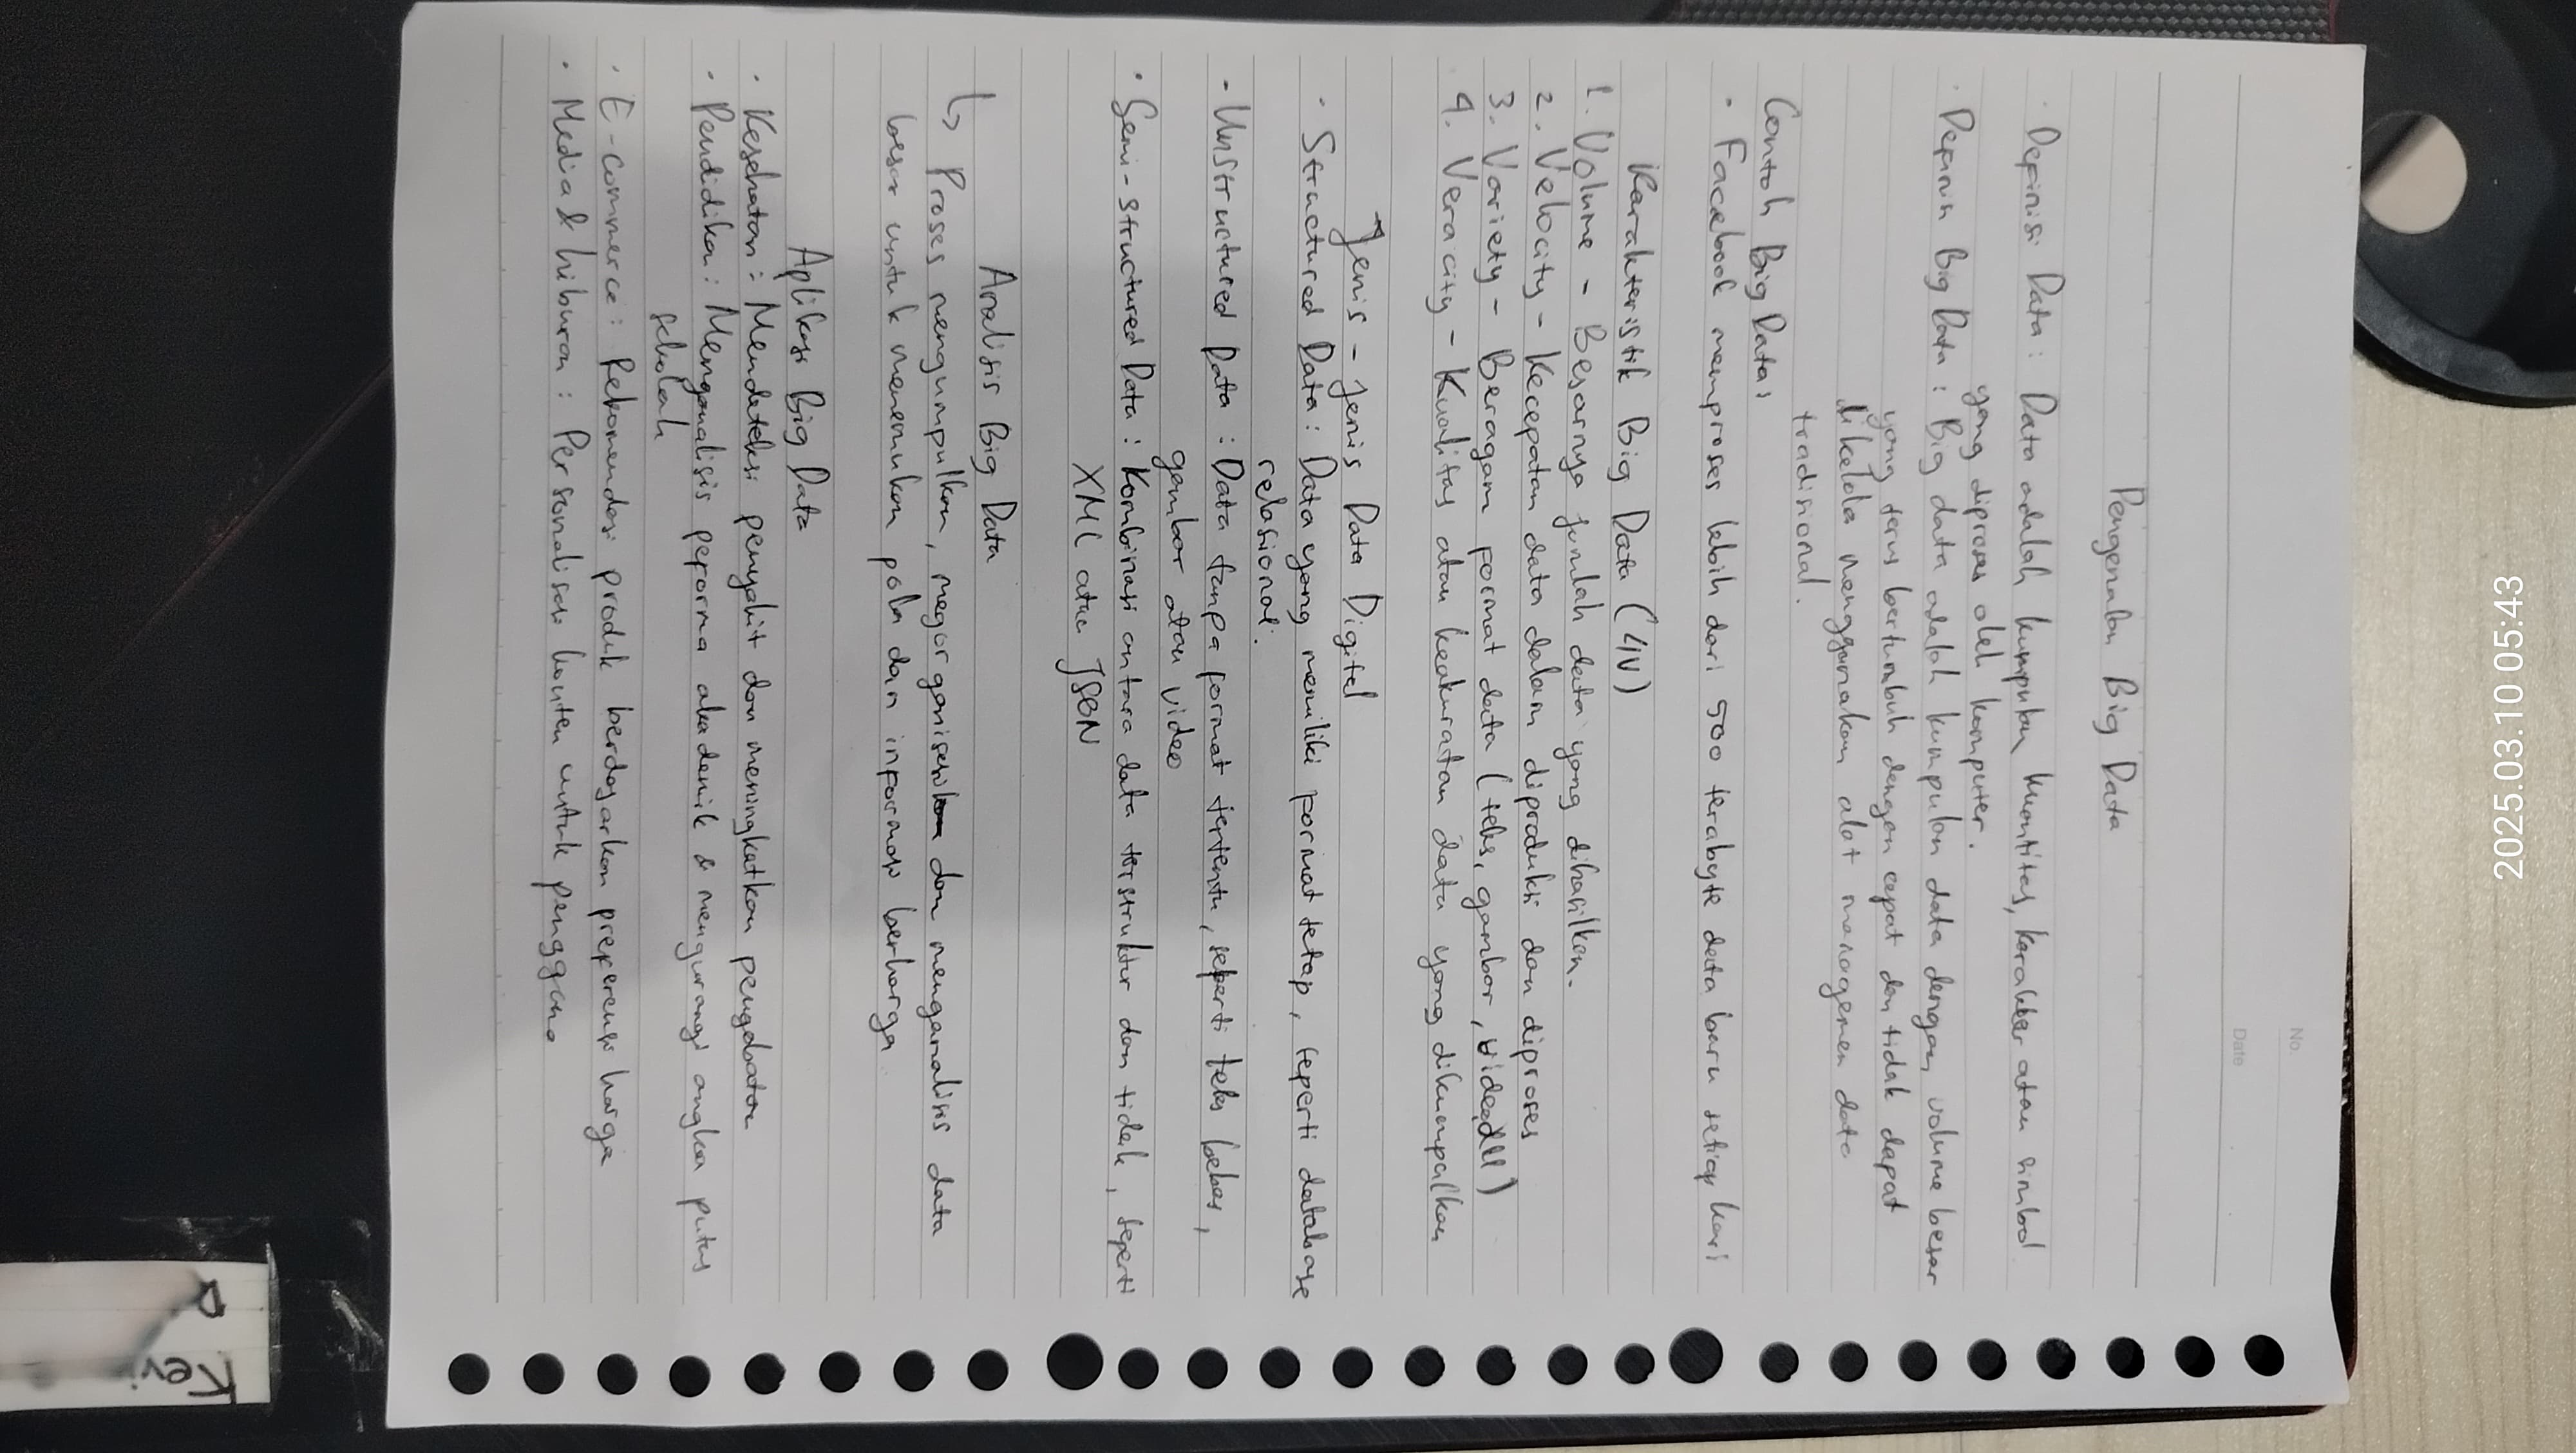 2025.03.10 05:43
No.
Date
Pengenalan Big Data
· Definisi Data : Data adalah kumpulan kuantitas, karakter atau simbol
yang diproses oleh komputer.
· Definisi Big Data : Big data adalah kumpulan data dengan volume besar
yang terus bertumbuh dengan cepat dan tidak dapat
dikelola menggunakan alat managemen data
tradisional.
Contoh Big Data:
· Facebook memproses lebih dari 500 terabyte data baru setiap hari
Karakteristik Big Data (4V)
1. Volume - Besarnya jumlah data yang dihasilkan.
2. Velocity - Kecepatan data dalam diproduksi dan diproses
3. Variety - Beragam format data (teks, gambar, video,dll)
4. Veracity - Kualitas atau keakuratan data yang dikumpulkan
Jenis - Jenis Data Digital
· Structured Data : Data yang memiliki format tetap, seperti database
relasional.
- Unstructured Data : Data tanpa format tertentu, seperti teks bebas,
gambar atau video
· Semi-structured Data : Kombinasi antara data terstruktur dan tidak, seperti
XML atau JSON
Analisis Big Data
↳ Proses mengumpulkan, megorganisasi dan menganalisis data
besar untuk menemukan pola dan informasi berharga
Aplikasi Big Data
· Kesehatan : Mendeteksi penyakit dan meningkatkan pengobatan
· Pendidikan : Menganalisis peforma akademik & mengurangi angka putus
sekolah
· E-commerce : Rekomendasi produk berdasarkan preferensi harga
· Media & hiburan : Personalisasi konten untuk pengguna